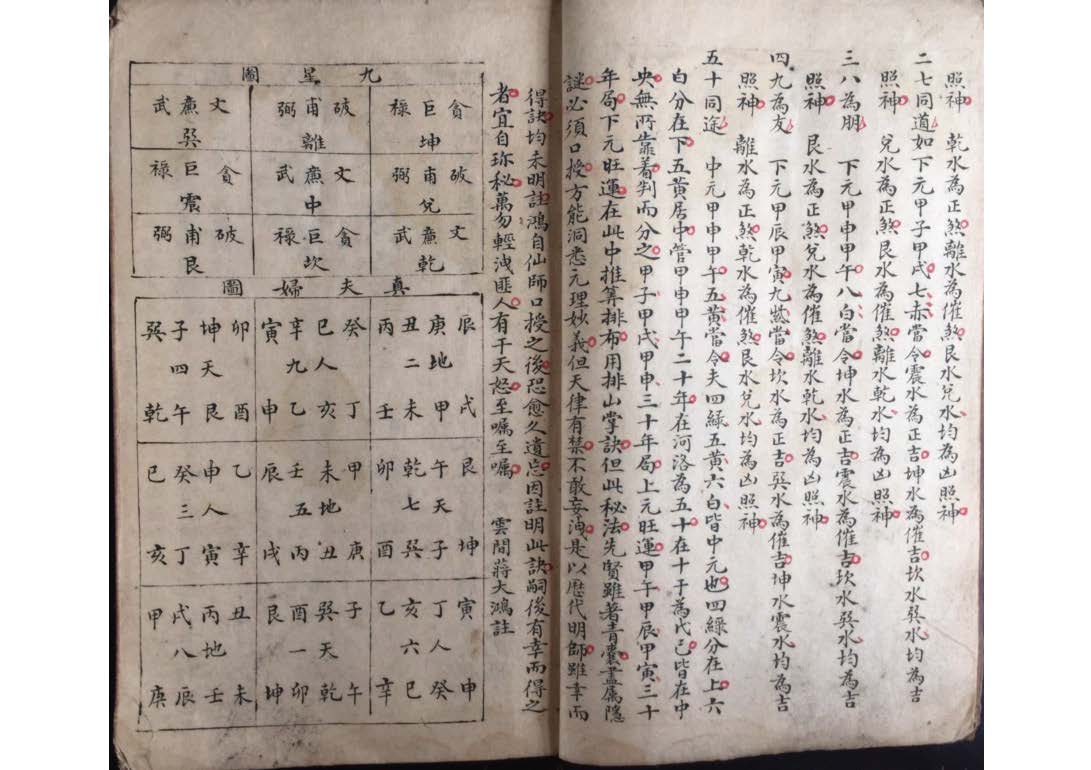 照神　乾水為正煞離水為催煞艮水兌水均為凶照神
二七同道如下元甲子甲戌七赤當令震水為正吉坤水為催吉坎水巽水均為吉
照神　兌水為正煞艮水為催煞離水乾水均為凶照神
三八為朋　下元甲申甲午八白當令坤水為正吉震水為催吉坎水巽水均為吉
照神　艮水為正煞兌水為催煞離水乾水均為凶照神
四九為友　下元甲辰甲寅九紫當令坎水為正吉巽水為催吉坤水震水均為吉
照神　離水為正煞乾水為催煞艮水兌水均為凶照神
五十同途　中元甲申甲午五黃當令夫四綠五黃六白皆中元也四綠分在上六
白分在下五黃居中管甲申甲午二十年在河洛為五十在十于為戊己皆在中
央無所靠着判而分之甲子甲戌甲申三十年局上元旺運甲午甲辰甲寅三十
年局下元旺運在此中推算排布用排山掌訣但此秘法先賢雖著青囊盡屬隱
謎必須口授方能洞悉元理妙義但天律有禁不敢妄洩是以歷代明師雖幸而
得訣均未明註鴻自仙師口授之後恐愈久遺忘因註明此訣嗣後有幸而得之
者宜自珍秘萬勿輕洩匪人有干天怒至囑至囑　雲間蔣大鴻註
九星圖
貪巨祿　破甫弼　文廉武
坤　離　巽
破甫弼　文廉武　貪巨祿
兌　中　震
文廉武　貪巨祿　破甫弼
乾　坎　艮
真夫婦圖
辰庚丑丙　癸巳辛寅　卯坤子巽
地二　人九　天四
戌甲未壬　丁亥乙申　酉艮午乾
艮午乾卯　甲未壬辰　乙申癸巳
天七　地五　人三
坤子巽酉　庚丑丙戌　辛寅丁亥
寅丁亥乙　子巽酉艮　丑丙戌甲
人六　天一　地八
申癸巳辛　午乾卯坤　未壬辰庚